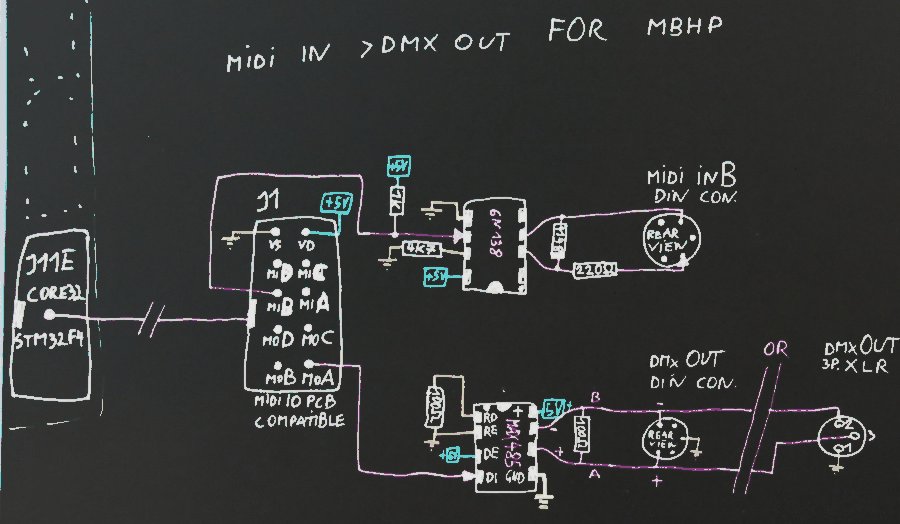 MiDi IN >DMX OUT FOR MBHP
J1
+5V
+5V
1K
6N138
4K7
+5V
220Ω
MIDI IN B
DIN CON.
REAR
VIEW
J11E
CORE32
STM32F4
VS VD
MiD MiC
MiB MiA
MoD MoC
MoB MoA
MIDI IO PCB
COMPATIBLE
RD
RE
DE
DI GND
MAX485
+
5V +
-
+
+5V
B
A
100Ω
DMX OUT
DIN CON.
-
REAR
VIEW
+
OR
DMX OUT
3P. XLR
2
3
1